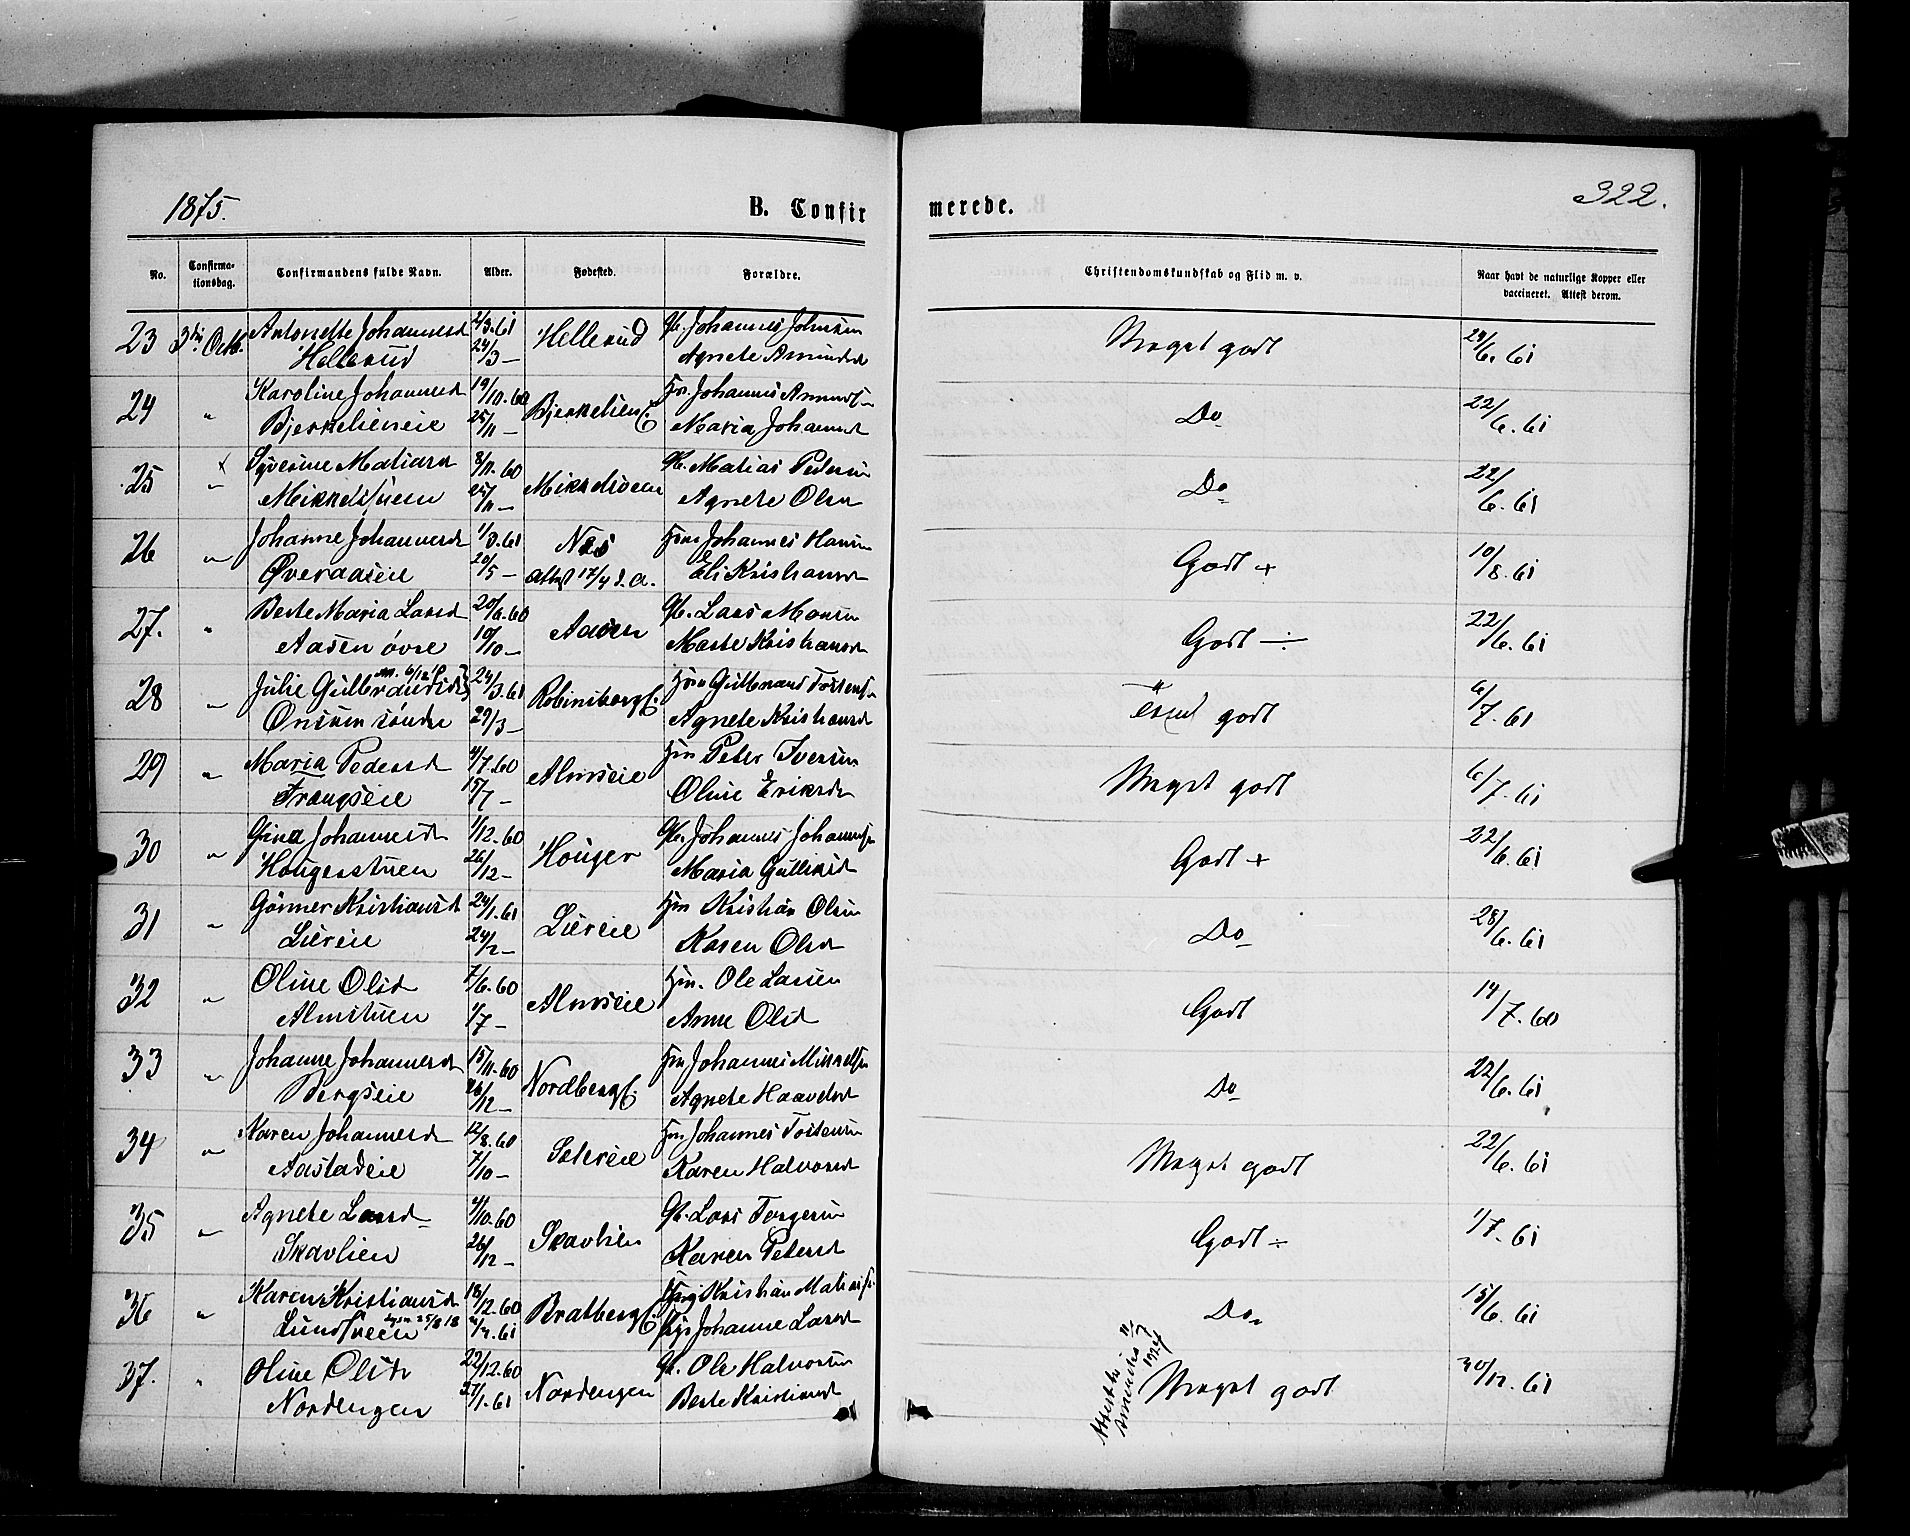 1875.
B. Confirmerede.
322.
No.
Confirma-
tionsdag.
Confirmandens fulde Navn.
Alder.
Fødested.
Forældre.
Christendomskundskab og Flid m. v.
Naar havt de naturlige Kopper eller
vaccineret. Attest derom.
23 3die Octb. Antonette Johannesd 2/3.61 Hellerud Gb. Johannes Johnsen Meget godt 24/6. 61
Hellerud 24/3 — Agnete Amundsd
24 " Karoline Johannesd 19/10.60 Bjerkelien E. Hm. Johannes Amundsn Do 22/6.61
Bjerkelieneie 25/11 — Maria Johannesd
25 " Syverine Matiasd 8/11.60 Mikkelsveen Gb. Matias Pedersen Do 22/6.61
Mikkelsveen 25/11 — Agnete Olsd
26 " Johanne Johannesd 1/3.61 Næs Hm Johannes Hansen Godt + 10/8.61
Øveraaseie 20/5 — Attest 17/4 d. A. Eli Kristiansd
27. " Berte Maria Larsd 20/6.60 Aasen Gb. Lars Monsen Godt ÷ 22/6.61
Aasen øvre 10/10 — Marte Kristiansd
28 " Julie Gulbrandsd 24/3.61 Robinsberg E. Hm Gulbrand Tostensn godt 6/7.61
Onsum søndre 29/3 — Agnete Kristiansd
29 " Maria Pedersd 4/7.60 Almseie Hm Peter Iversen Meget godt 6/7.61
Trangseie 15/7 — Oline Eriksd
30 " Gina Johannesd 1/12.60 Houger Gb. Johannes Johannesn Godt + 22/6.61
Hougerstuen 26/12 — Maria Gulliksd
31 " Gunner Kristiansd 24/1.61 Liereie Hm Kristian Olsen Do 28/6.61
Liereie 24/2 — Karen Olsd
32 " Oline Olsd 7/6.60 Almseie Hm. Ole Larsen Godt 14/7.60
Almstuen 1/7 — Anne Olsd
33 " Johanne Johannesd 15/11.60 Nordberg E. Hm Johannes Mikkelsn Do 22/6.61
Bergseie 26/12 — Agnete Haavelsd
34 " Karen Johannesd 12/8.60 Sætereie Hm Johannes Tostensen Meget godt 22/6.61
Aastadeie 7/10 — Karen Halvorsd
35 " Agnete Larsd 4/10.60 Skavlien Gb. Lars Torgersen Godt ÷ 1/7.61
Skavlien 26/12 — Karen Pedersd
36 " Karen Kristiansd 18/12.60 Bratberg E. Ung Kristian Matiasn Do 15/6.61
Lundsveen 25/8 18 /4.61 Pige Johanne Larsd
37. " Oline Olsd 22/12.60 Nordengen Gb. Ole Halvorsen Meget godt 30/12.61
Nordengen 27/1.61 Berte Kristiansd